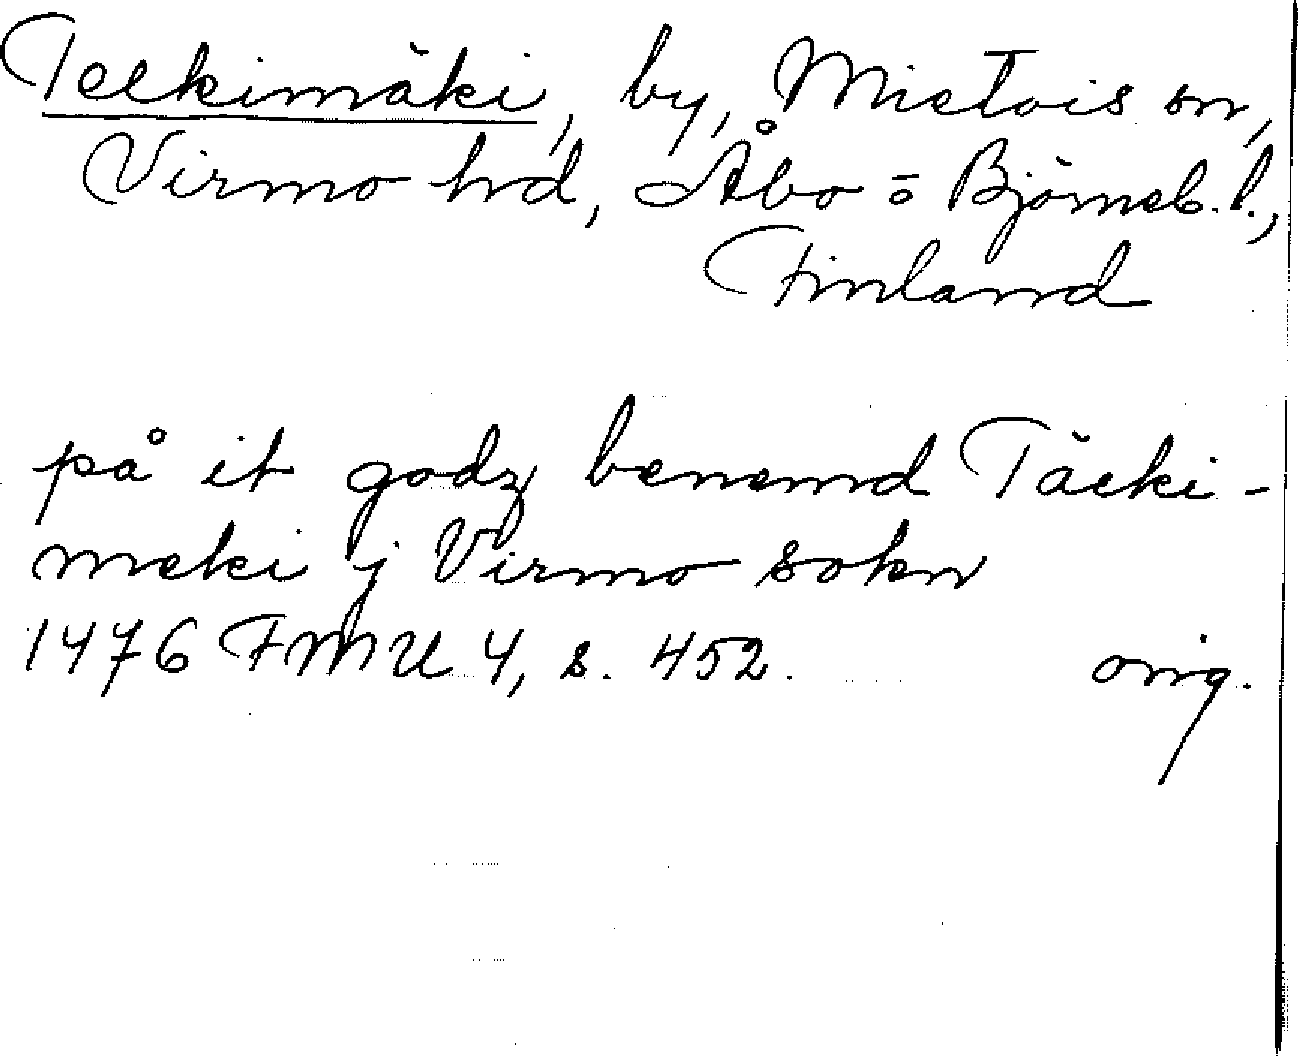 Teekimäki, by, Mietois sn,
Virmo hd, Åbo o Björneb. l.,
Finland
på it godz benemd Täcki-
meki j Virmo sokn
1476 FMU 4, s. 452. orig.